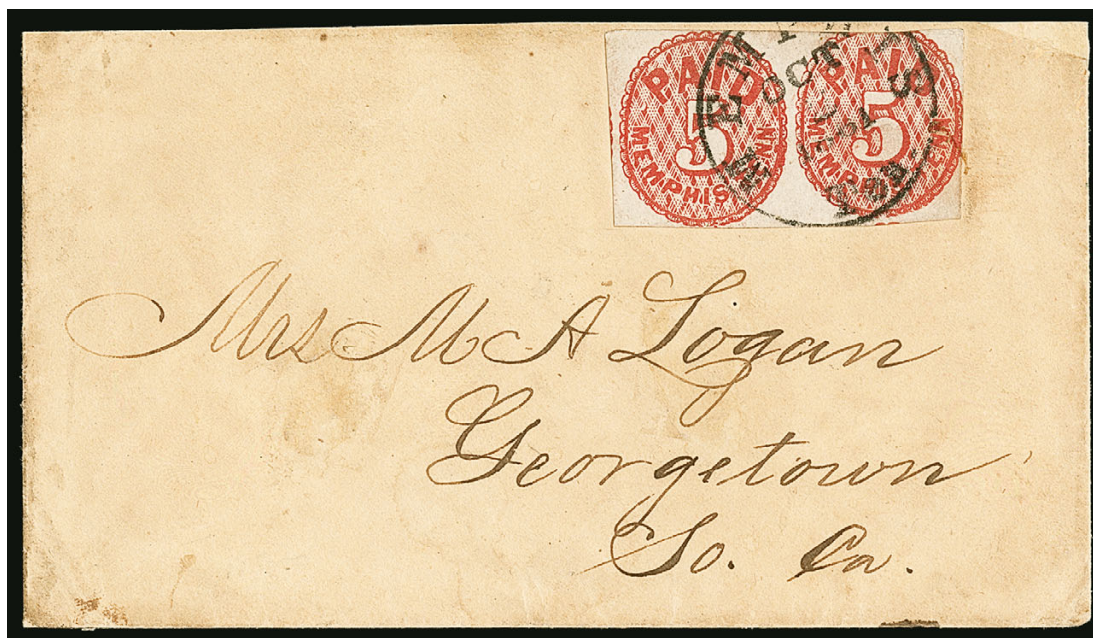 PAID 5 MEMPHIS TENN
PAID 5 MEMPHIS TENN
MEMPHIS
OCT
Mrs M A Logan
Georgetown
So. Ca.